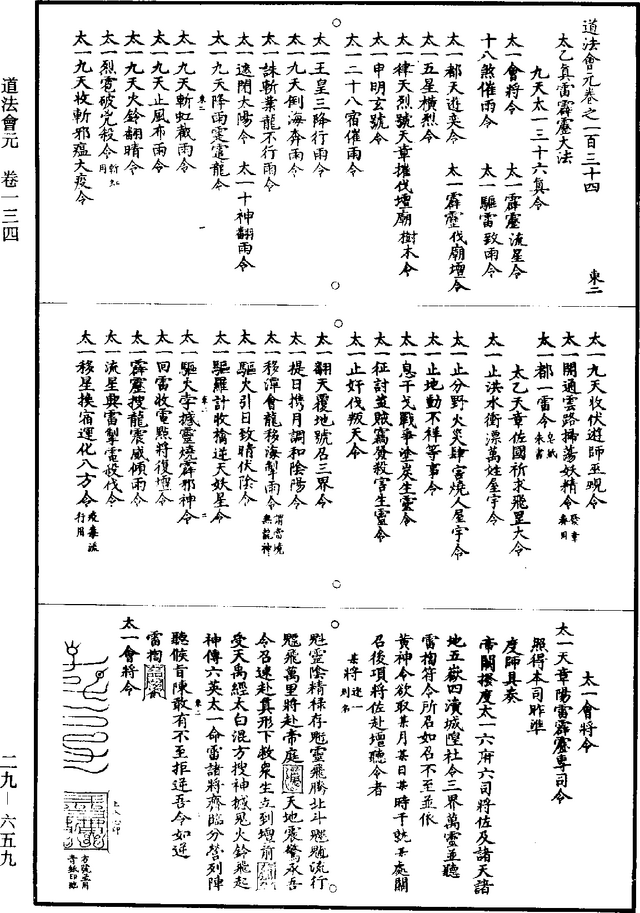 道法會元卷之一百三十四　東二
太乙真雷霹靂大法
九天太一三十六真令
太一會將令　太一霹靂流星令
十八煞催雨令　太一驅雷致雨令
太一都天遊奕令　太一霹靂伐廟壇令
太一五星橫烈令
太一律天烈號天章摧伐壇廟樹木令
太一申明玄號令
太一二十八宿催雨令
太一王皇三降行雨令
太一九天倒海奔雨令
太一誅斬業龍不行雨令
太一遶閉太陽令　太一十神翻雨令
太一九天降雨定蜃龍令
太一九天斬虹截雨令
太一九天止風布雨令
太一九天火鈴翻晴令
太一烈雹破兇殺令斬蚘用
太一九天收斬邪瘟大疫令
太一九天收伏遊師巫覡令
太一開通雲路掃蕩妖精令發章奏用
太一都一雷令皂紙朱書
太乙天章佐國祈求飛罡大令
太一止洪水衝漂萬姓屋宇令
太一止分野火災肆害燒人屋宇令
太一止地動不祥等事令
太一息干戈戰爭塗炭生靈令
太一征討蓝賊竊發殺害生靈令
太一止奸伐叛天令
太一翻天覆地號召三界令
太一提日攜月調和陰陽令
太一移潭會龍移海掣雨令謂當境無龍神
太一驅火引日致晴伏陰令
太一驅羅計收橋逆天妖星令
太一驅火孛摅靈燒霹邪神令
太一回雷收電點將復壇令
太一霹靂搜龍震威傾雨令
太一流星興雷掣電殺伐令
太一移星換宿運化八方令疫毒流行用
太一會將令
太一天章陽雷霹靂專司令
照得本司昨準
度師具奏
帝闕撥度太一六府六司將佐及諸天諸
地五嶽四瀆城隍社令三界萬靈並聽
雷㨨符令所召如召不至並依
黃神令欲取某月某日某時于就某處關
召後項將佐赴壇聽令者
某將速一列名
魁靈陰精祿存魁靈飛騰北斗魒魓流行
魁飛萬里將赴帝庭天地震驚承吾
令召速赴真形下救衆生立到壇前
受天禹經太白混方搜神摅鬼火鈴飛起
神傳六英太一命雷諸將齊臨分營列陣
聽候旨陳敢有不至拒逆吾令如逆
雷㨨
太一會將令
道法會元　卷一三四
二九－六五九